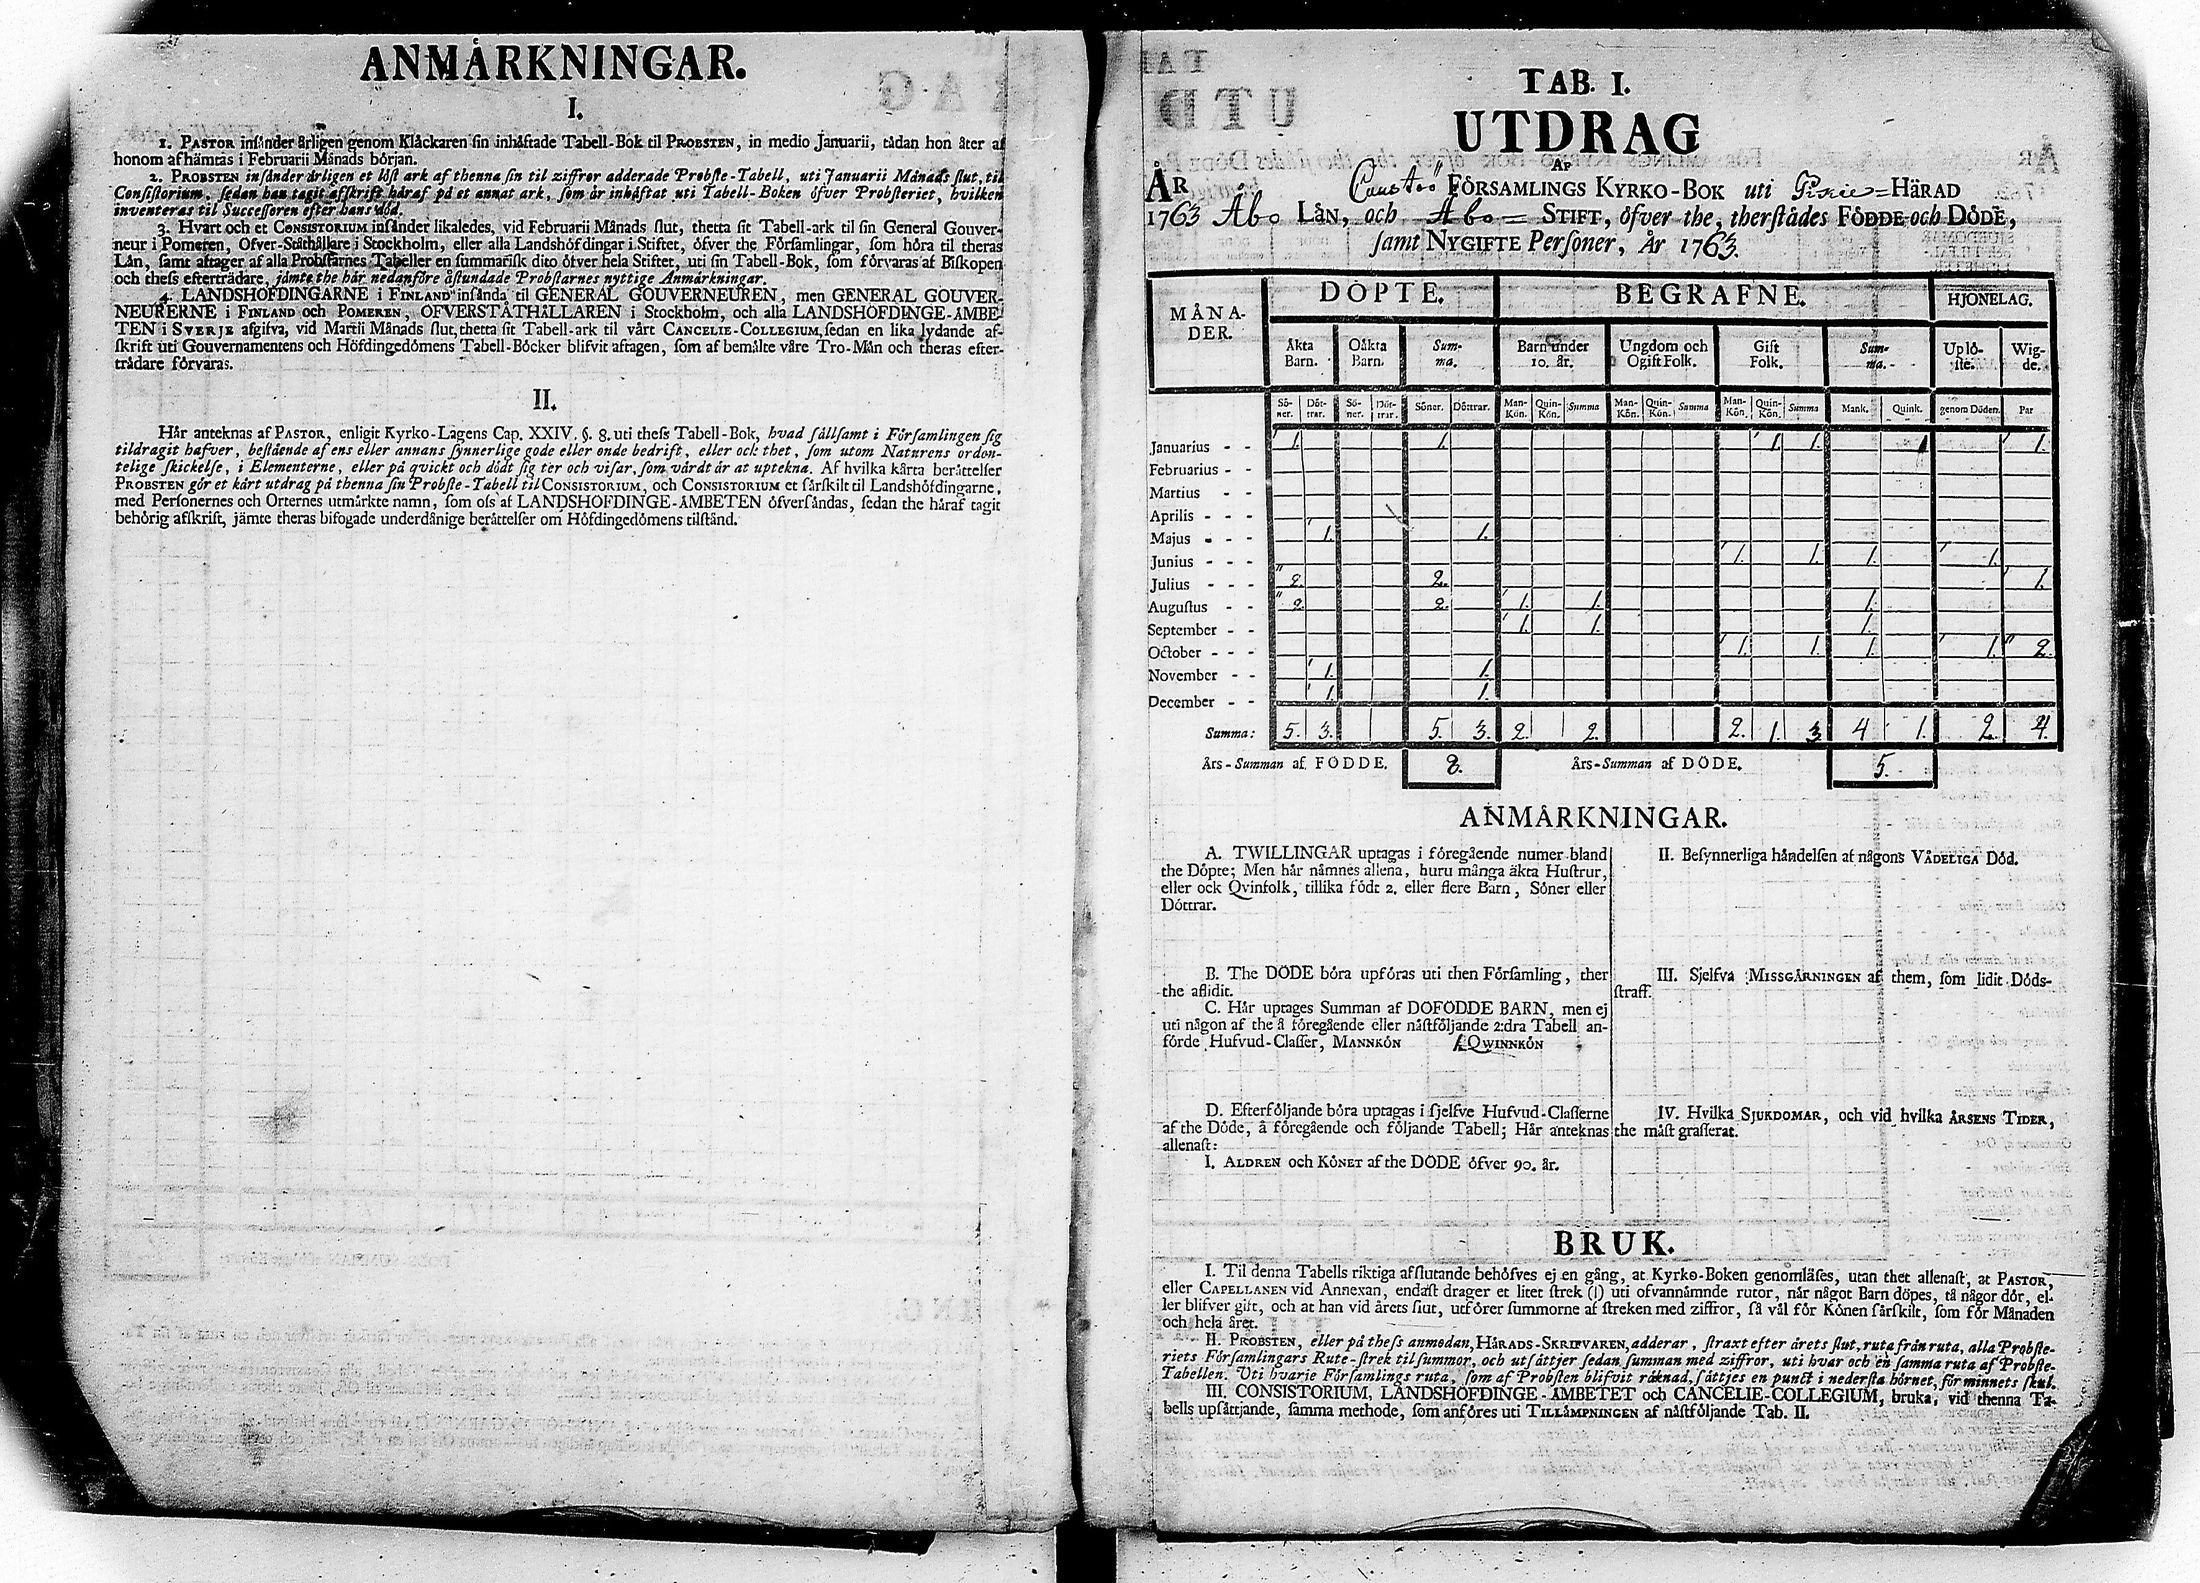 ANMÅRKNINGAR.
I.
1. PASTOR inſånder årligen genom Klåckaren ſin inhåftade Tabell-Bok til PROBSTEN, in medio Januarii, tådan hon åter af
honom afhåmtas i Februarii Månads början.
2. PROBSTEN inſånder årligen et löſt ark af thenna ſin til ziffror adderade Probſte-Tabell, uti Januarii Månads ſlut, til
Conſiſtorium, ſedan han tagit afſkrift håraf på et annat ark, ſom år inhåftat uti Tabell-Boken öfver Probſteriet, hvilken
inventeras til Succeſſoren efter hans död.
3. Hvart och et CONSISTORIUM inſånder likaledes, vid Februarii Månads ſlut, thetta ſit Tabell-ark til ſin General Gouver-
neur i Pomeren, Öfver-Ståthållare i Stockholm, eller alla Landshöfdingar i Stiftet, öfver the Förſamlingar, ſom höra til theras
Lån, ſamt aftager af alla Probſtarnes Tabeller en ſummariſk dito öfver hela Stiftet, uti ſin Tabell-Bok, ſom förvaras af Biſkopen
och theſs eftertrådare, jåmte the hår nedanföre åſtundade Probſtarnes nyttige Anmårkningar.
4. LANDSHÖFDINGARNE i FINLAND inſånda til GENERAL GOUVERNEUREN, men GENERAL GOUVER-
NEURERNE i FINLAND och POMEREN, ÖFVERSTÅTHÅLLAREN i Stockholm, och alla LANDSHÖFDINGE-ÅMBE-
TEN i SVERJE afgifva, vid Martii Månads ſlut, thetta ſit Tabell-ark til vårt CANCELIE-COLLEGIUM, ſedan en lika lydande af-
ſkrift uti Gouvernamentens och Höfdingedömens Tabell-Böcker blifvit aftagen, ſom af bemålte våre Tro-Mån och theras efter-
trådare förvaras.
II.
Hår anteknas af PASTOR, enligit Kyrko-Lagens Cap. XXIV. §. 8. uti theſs Tabell-Bok, hvad ſållſamt i Förſamlingen ſig
tildragit hafver, beſtående af ens eller annans ſynnerlige gode eller onde bedrift, eller ock thet, ſom utom Naturens ordon-
telige ſkickelſe, i Elementerne, eller på qvickt och dödt ſig ter och viſar, ſom vårdt år at uptekna. Af hvilka kårta beråttelſer
PROBSTEN gör et kårt utdrag på thenna ſin Probſte-Tabell til CONSISTORIUM, och CONSISTORIUM et ſårſkilt til Landshöfdingarne,
med Perſonernes och Orternes utmårkte namn, ſom oſs af LANDSHÖFDINGE-ÅMBETEN öfverſåndas, ſedan the håraf tagit
behörig afſkrift, jåmte theras bifogade underdånige beråttelſer om Höfdingedömens tilſtånd.
TAB. I.
UTDRAG
AF
ÅR FÖRSAMLINGS KYRKO-BOK uti HÄRAD
1763 Åbo LÅN, och Åbo STIFT, öfver the, therſtådes FÖDDE och DÖDE,
ſamt NYGIFTE Perſoner, År 1763.
MÅNA-
DER. DÖPTE. BEGRAFNE. HJONELAG.
Åkta Barn. Oåkta Barn. Sum-ma. Barn under 10. år. Ungdom och Ogift Folk. Gift Folk. Sum-ma. Uplö-ſte. Wig-de.
Sö-ner. Döt-trar. Sö-ner. Döt-trar. Söner. Döttrar. Man-Kön. Quin-Kön. Summa Man-Kön. Quin-Kön. Summa Man-Kön. Quin-Kön. Summa Mank. Quink. genom Döden. Par
Januarius - - 1. 1. 1 1. 1 1.
Februarius - -
Martius - -
Aprilis - - -
Majus - - - 1. 1.
Junius - - - 1. 1. 1. 1.
Julius - - - 2. 2. 1.
Auguſtus - - 2. 2. 1. 1. 1.
September - - 1. 1. 1.
October - - - 1. 1. 1. 1. 2.
November - - 1. 1.
December - - 1. 1.
Summa: 5. 3. 5. 3. 2. 2. 2. 1. 3. 4 1. 2. 4.
Års-Summan af FÖDDE. 8. Års-Summan af DÖDE. 5.
ANMÅRKNINGAR.
A. TWILLINGAR uptagas i föregående numer bland
the Döpte; Men hår nåmnes allena, huru många äkta Huſtrur,
eller ock Qvinfolk, tillika födt 2. eller flere Barn, Söner eller
Döttrar.
B. The DÖDE böra upföras uti then Förſamling, ther
the aflidit.
C. Hår uptages Summan af DÖFÖDDE BARN, men ej
uti någon af the å föregående eller nåſtföljande 2:dra Tabell an-
förde Hufvud-Claſſer, MANNKÖN 1. QWINNKÖN
D. Efterföljande böra uptagas i ſjelfve Hufvud-Claſſerne
af the Döde, å föregående och följande Tabell; Hår anteknas
allenaſt:
I. ÅLDREN och KÖNET af the DÖDE öfver 90. år.
II. Beſynnerliga håndelſen af någons VÅDELIGA Död.
III. Sjelfva MISSGÅRNINGEN af them, ſom lidit Döds-
ſtraff.
IV. Hvilka SJUKDOMAR, och vid hvilka ÅRSENS TIDER,
the måſt graſſerat.
BRUK.
I. Til denna Tabells riktiga afſlutande behöfves ej en gång, at Kyrko-Boken genomläſes, utan thet allenaſt, at PASTOR,
eller CAPELLANEN vid Annexan, endaſt drager et litet ſtrek (|) uti ofvannåmnde rutor, når något Barn döpes, tå någor dör, el-
ler blifver gift, och at han vid årets ſlut, utförer ſummorne af ſtreken med ziffror, ſå vål för Könen ſårſkilt, ſom för Månaden
och hela året.
II. PROBSTEN, eller på theſs anmodan, HÅRADS-SKRIFVAREN, adderar, ſtraxt efter årets ſlut, ruta från ruta, alla Probſte-
riets Förſamlingars Rute-ſtrek til ſummor, och utſåttjer ſedan ſumman med ziffror, uti hvar och en ſamma ruta af Probſte-
Tabellen. Uti hvarje Förſamlings ruta, ſom af Probſten blifvit råknad, ſåttjes en punct i nederſta hörnet, för minnets ſkul.
III. CONSISTORIUM, LANDSHÖFDINGE-ÅMBETET och CANCELIE-COLLEGIUM, bruka, vid thenna Ta-
bells upſåttjande, ſamma methode, ſom anföres uti TILLÅMPNINGEN af nåſtföljande Tab. II.